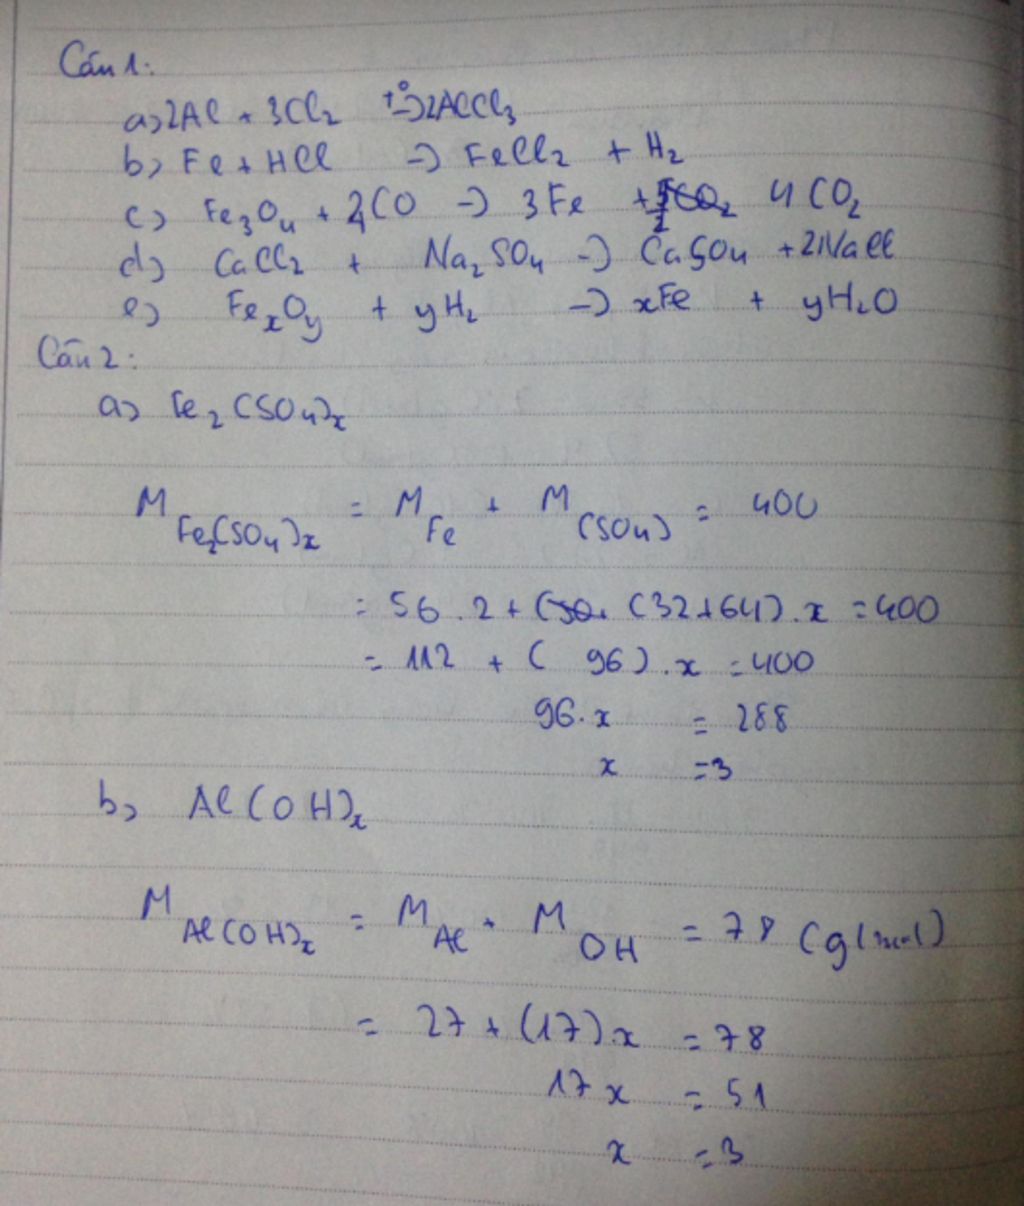 Câu 1:
a) 2Al + 3Cl₂ t°→ 2AlCl₃
b) Fe + HCl → FeCl₂ + H₂
c) Fe₃O₄ + 4CO → 3Fe + 4CO₂
d) CaCl₂ + Na₂SO₄ → CaSO₄ + 2NaCl
e) FeₓOᵧ + yH₂ → xFe + yH₂O
Câu 2:
a) Fe₂(SO₄)ₓ
M Fe₂(SO₄)ₓ = M Fe + M (SO₄) = 400
= 56 . 2 + (32+64) . x = 400
= 112 + ( 96) . x = 400
96. x = 288
x = 3
b) Al(OH)ₓ
M Al(OH)ₓ = M Al + M OH = 78 (g/mol)
= 27 + (17).x = 78
17x = 51
x = 3